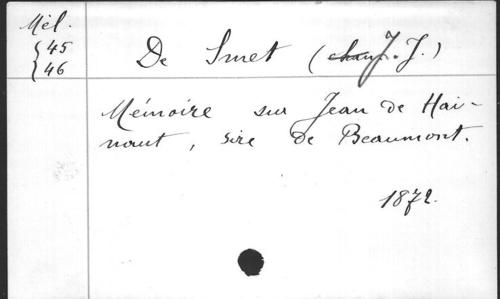 Mél.
{45
{46
De Smet (J. J.)
Mémoire sur Jean de Hai-
naut, sire de Beaumont.
1872.